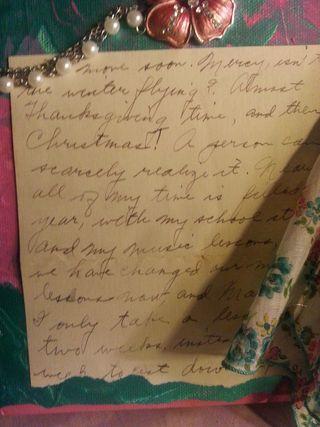 move soon. Mercy, isn't
the winter flying? Almost
Thanksgiving time, and then
Christmas! A person can
scarcely realize it.
all of my time is filled
year, with my school
and my music lessons,
we have changed our
lessons now and
I only take a
two weeks, inste
week to cut down